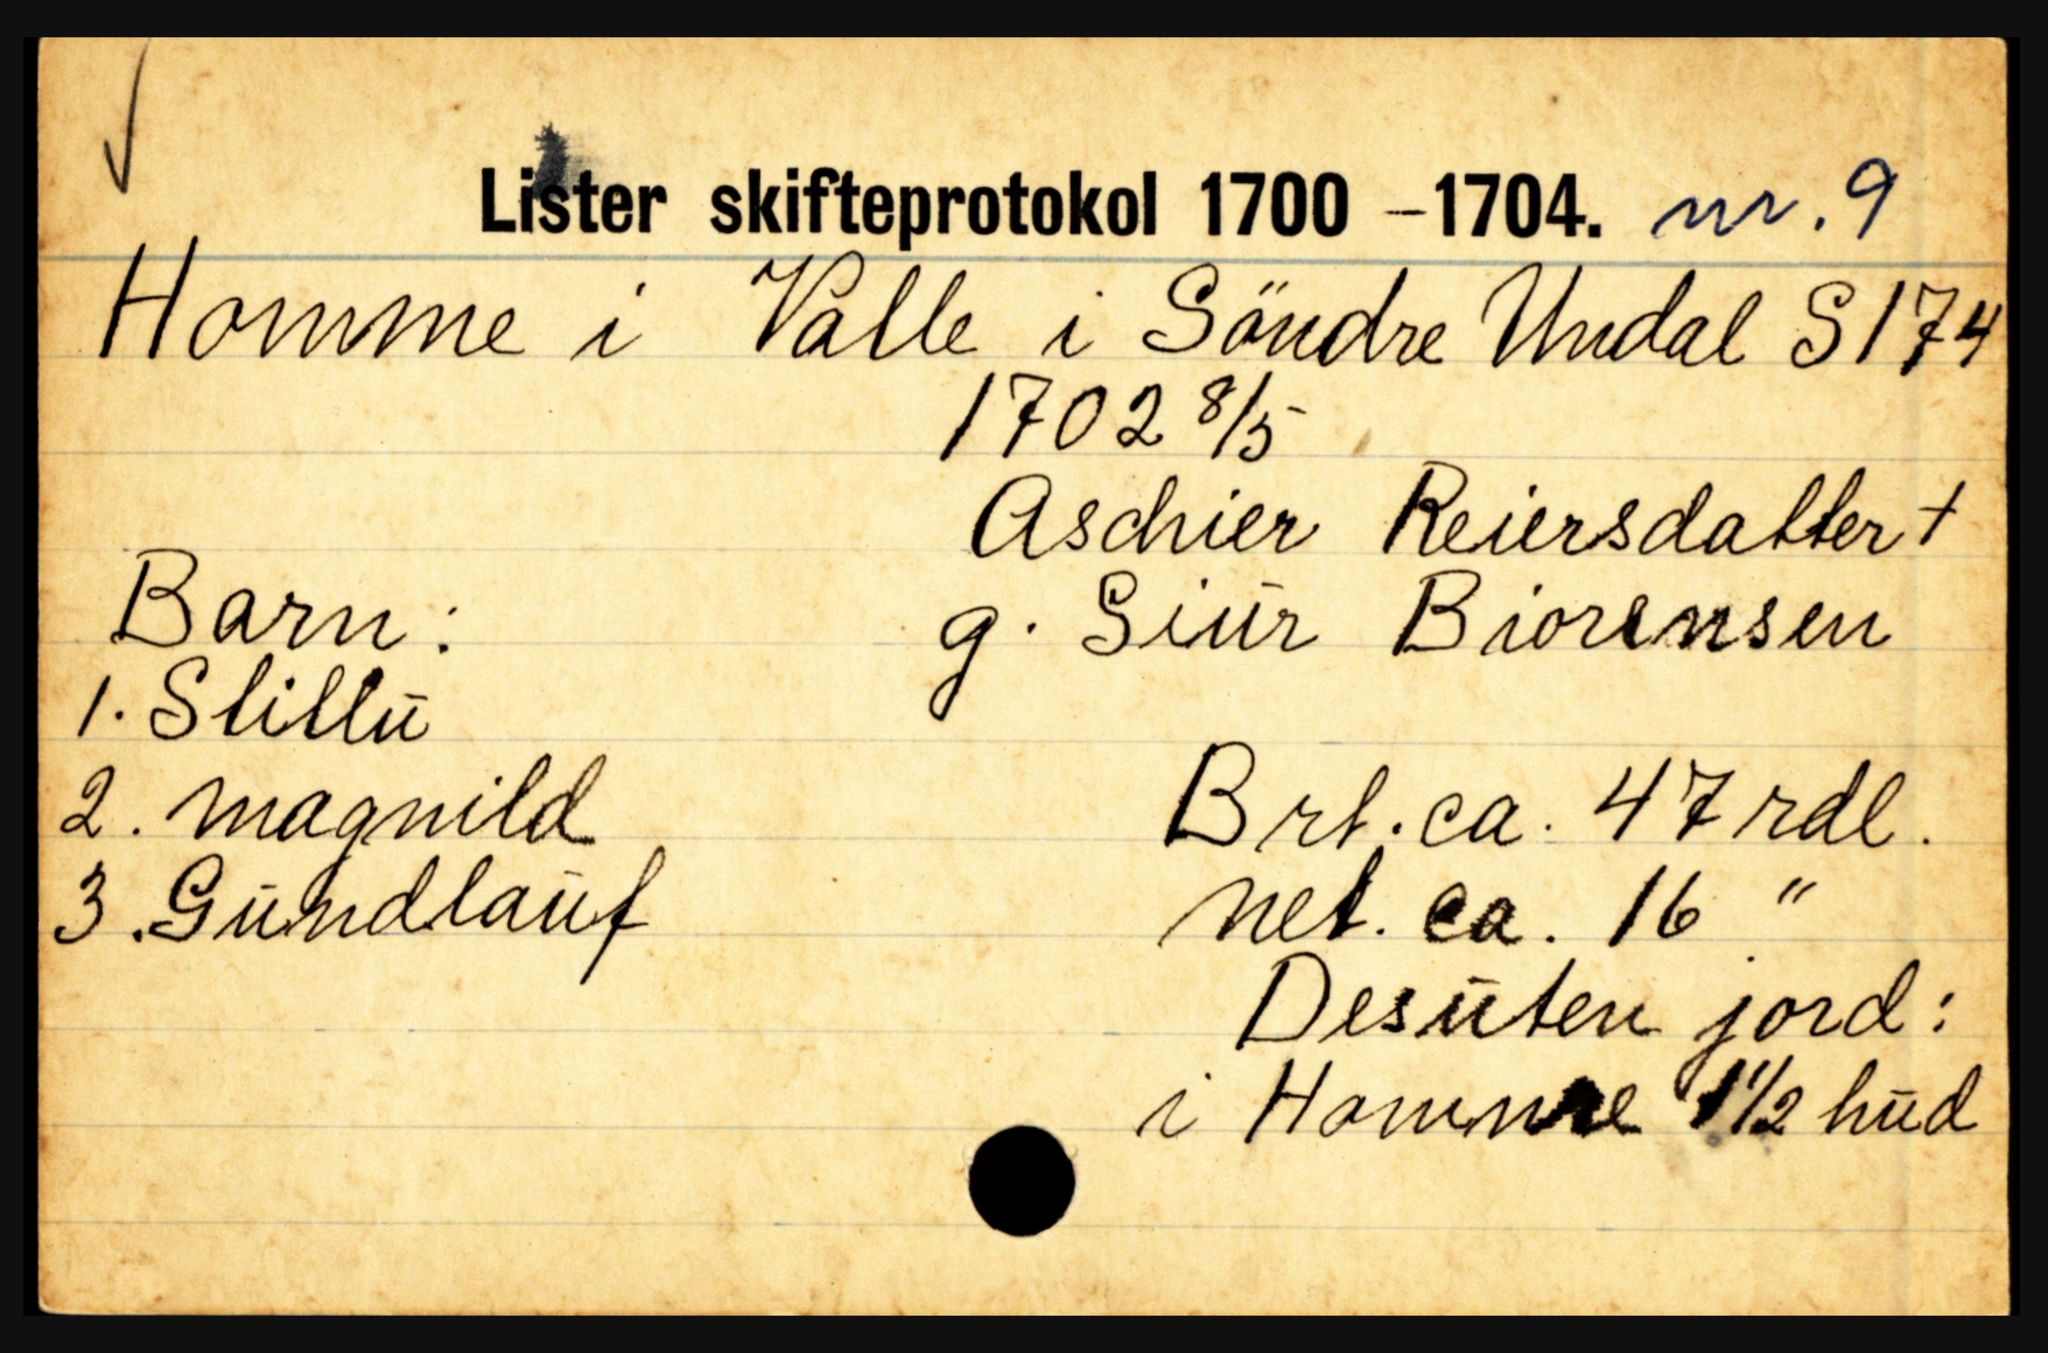 Lister skifteprotokol 1700 – 1704. nr. 9
Homme i Valle i Söndre Undal S 174
1702 8/5
Aschier Reiersdatter +
Barn: g. Siur Biorensen
1. Slillu
2. Magnild Brt. ca. 47 rdl.
3. Gundlauf net. ca. 16 "
Desuten jord:
i Homme 1 1/2 hud